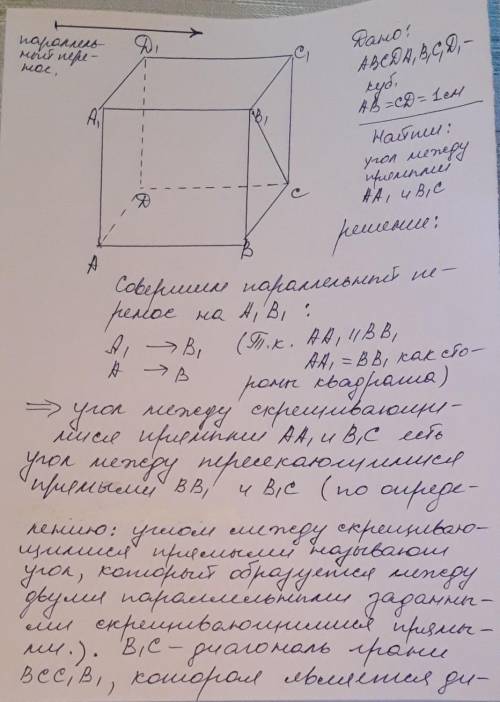 параллель-
ный пере-
нос.
D₁
C₁
A₁
B₁
D
C
A
B
Дано:
ABCDA₁B₁C₁D₁ –
куб.
AB = CD = 1 см
Найти:
угол между
прямыми
AA₁ и B₁C
решение:
Совершим параллельный пе-
ренос на A₁B₁ :
A₁ → B₁ (Т.к. AA₁ || BB₁
A → B AA₁ = BB₁ как сто-
роны квадрата)
⟹ угол между скрещивающи-
мися прямыми AA₁ и B₁C есть
угол между пересекающимися
прямыми BB₁ и B₁C (по опреде-
лению: углом между скрещиваю-
щимися прямыми называют
угол, который образуется между
двумя параллельными заданны-
ми скрещивающимися прямы-
ми.). B₁C – диагональ грани
BCC₁B₁, которая является ди-